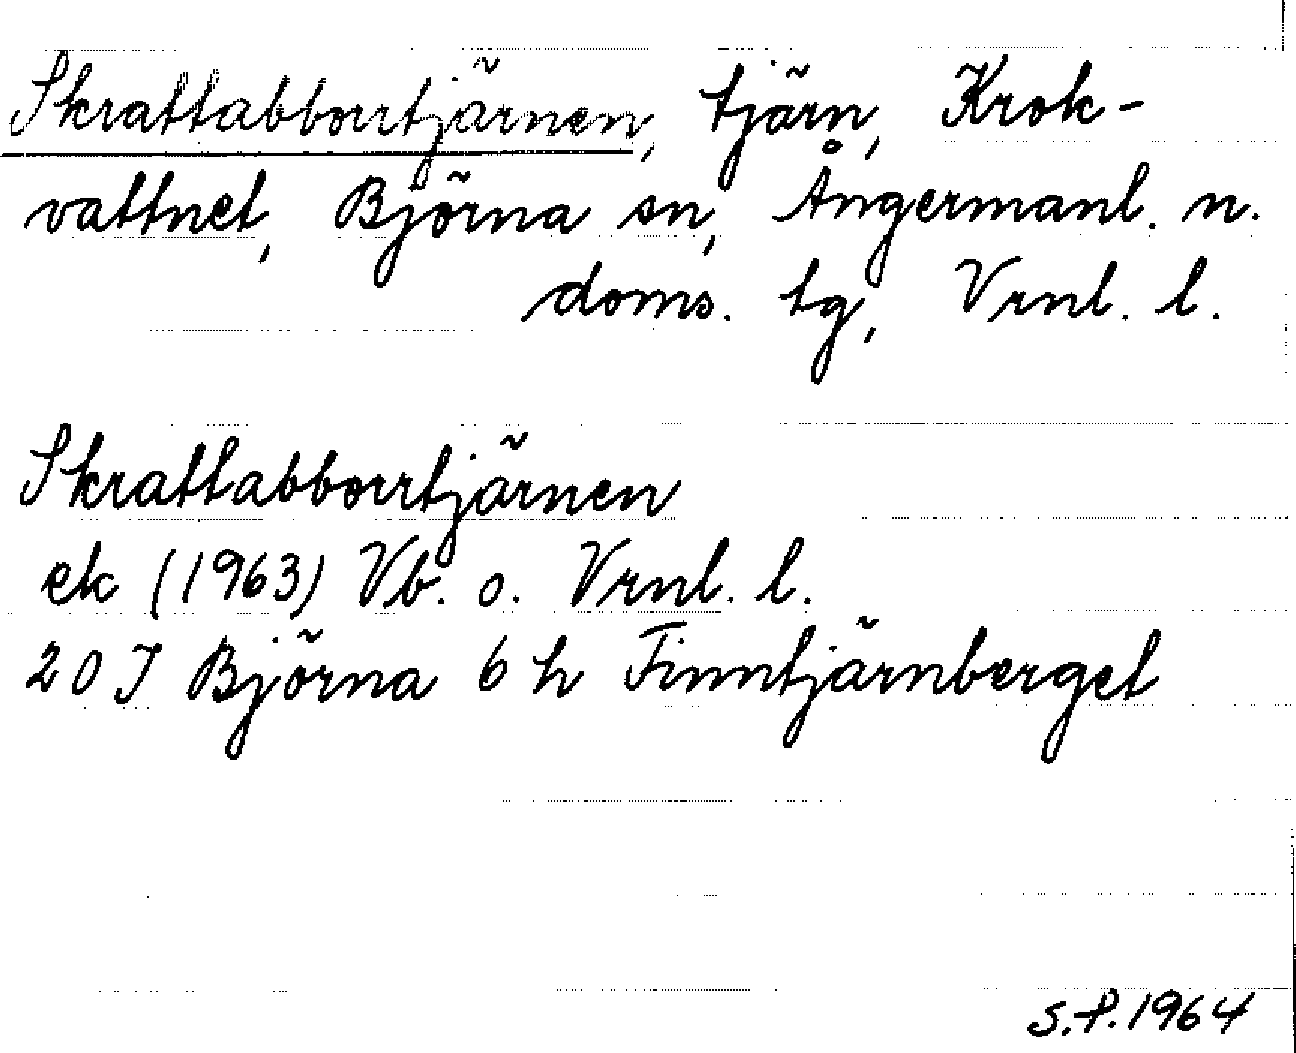 Skrattabborrtjärnen, tjärn, Krok-
vattnet, Björna sn, Ångermanl. n.
doms. tg, Vrnl. l.
Skrattabborrtjärnen
ek (1963) Vb. o. Vrnl. l.
20 J Björna 6 h Finntjärnberget
S.P. 1964